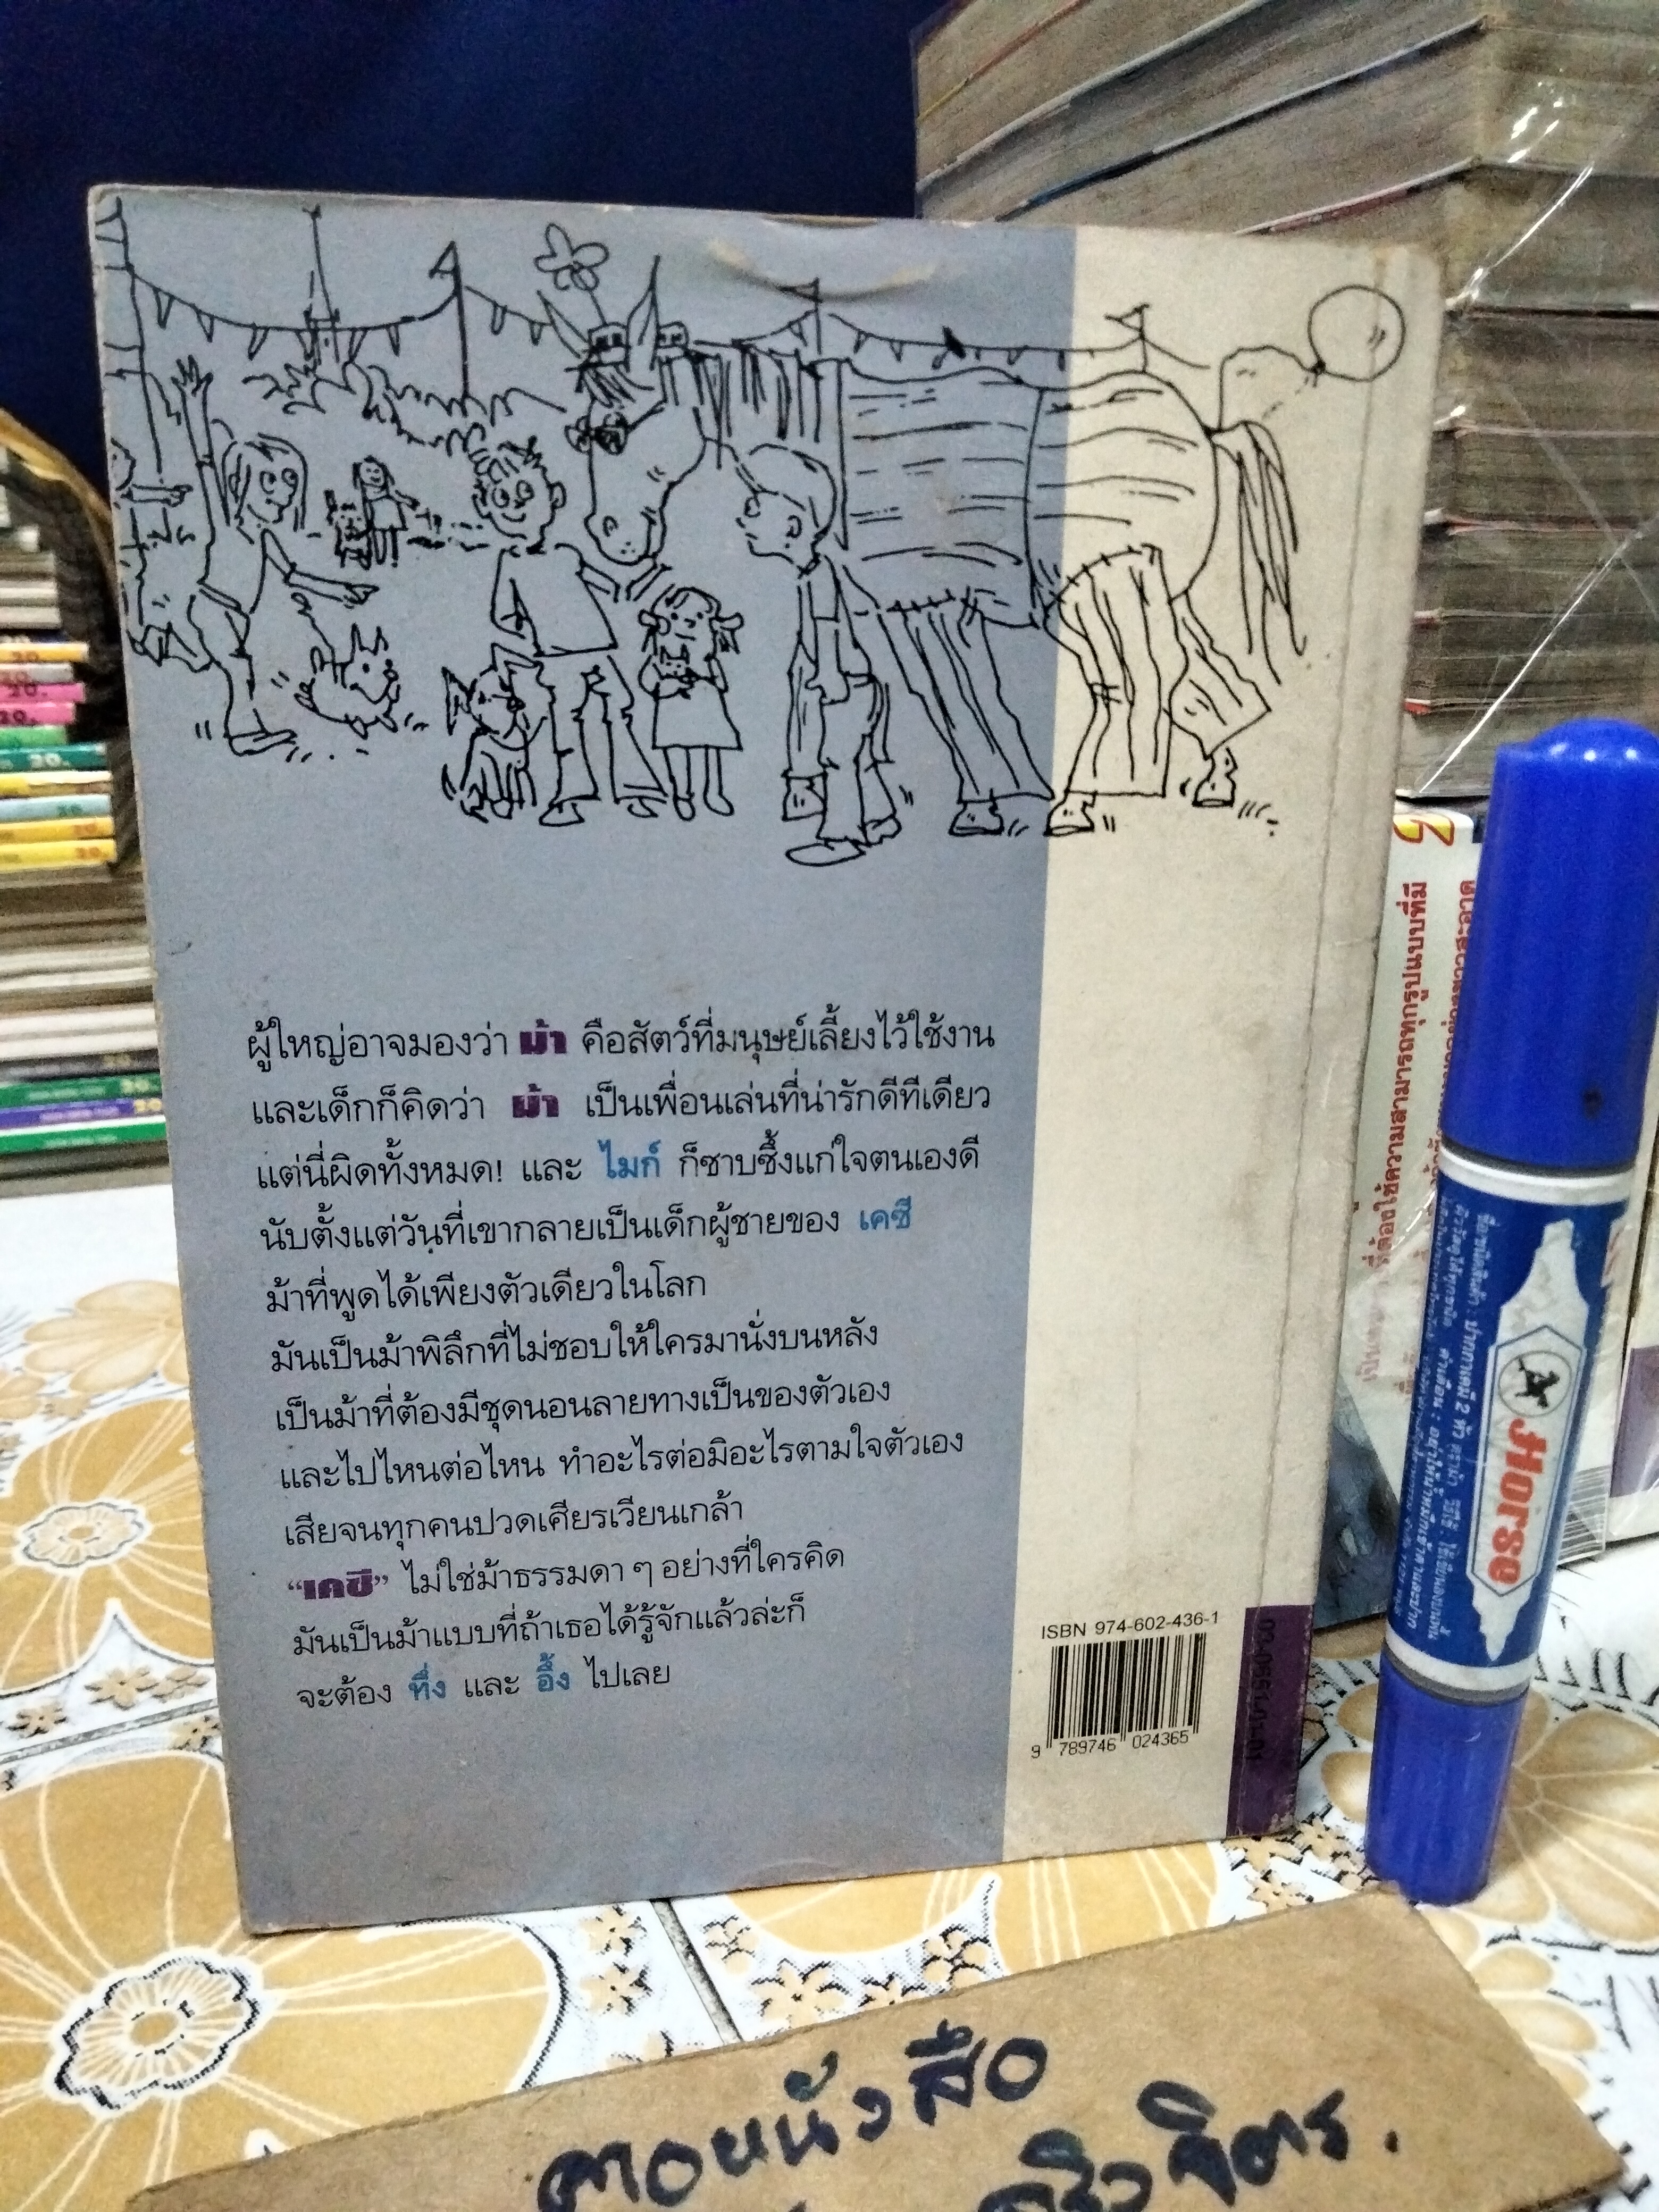 ผู้ใหญ่อาจมองว่า ม้า คือสัตว์ที่มนุษย์เลี้ยงไว้ใช้งาน
และเด็กก็คิดว่า ม้า เป็นเพื่อนเล่นที่น่ารักดีทีเดียว
แต่นี่ผิดทั้งหมด! และ ไมก์ ก็ซาบซึ้งแก่ใจตนเองดี
นับตั้งแต่วันที่เขากลายเป็นเด็กผู้ชายของ เคซี
ม้าที่พูดได้เพียงตัวเดียวในโลก
มันเป็นม้าพิลึกที่ไม่ชอบให้ใครมานั่งบนหลัง
เป็นม้าที่ต้องมีชุดนอนลายทางเป็นของตัวเอง
และไปไหนต่อไหน ทำอะไรต่อมิอะไรตามใจตัวเอง
เสียจนทุกคนปวดเศียรเวียนเกล้า
“เคซี” ไม่ใช่ม้าธรรมดา ๆ อย่างที่ใครคิด
มันเป็นม้าแบบที่ถ้าเธอได้รู้จักแล้วล่ะก็
จะต้อง ทึ่ง และ อึ้ง ไปเลย
ISBN 974-602-436-1
9 789746 024365
03-0551-01-01
ที่ต้องใช้ความสามารถทุกรูปแบบที่มี
Horse
ปากกาเคมี 2 หัว
ตาอหนังสือ
ศรีวิจิตร.